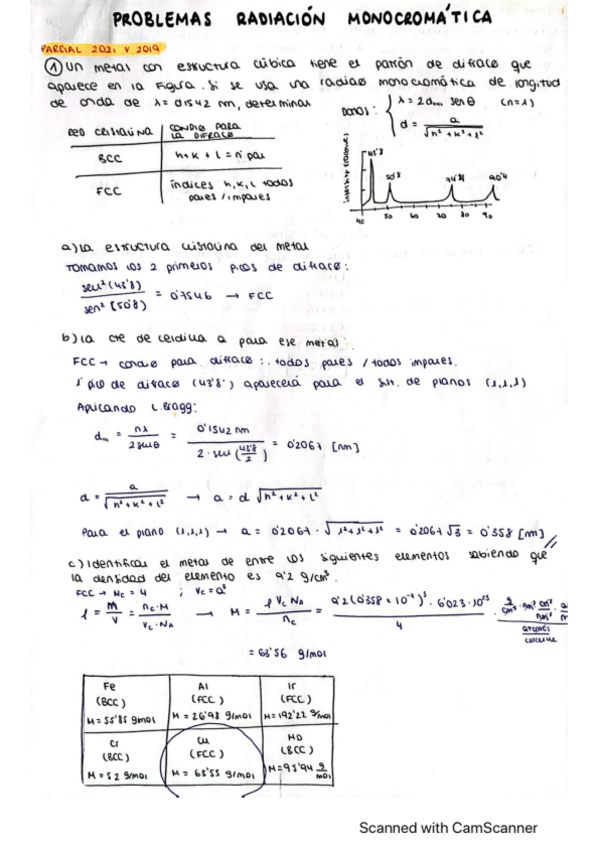 PROBLEMAS RADIACIÓN MONOCROMÁTICA
PARCIAL 2021 Y 2019
① Un metal con estructura cúbica tiene el patrón de difracc que
aparece en la figura. Si se usa una radiac monocromática de longitud
de onda de λ = 0'1542 nm, determinar
Datos: { λ = 2dₕₖₗ sen θ (n=1)
d = a / √h² + k² + l²
RED CRISTALINA | CONDIC PARA LA DIFRACC
BCC | h + k + l = nº par
FCC | índices h, k, l todos pares / impares
43'8 50'8 74'4 90'4
40 50 60 70 80 90
a) La estructura cristalina del metal
Tomamos los 2 primeros picos de difracc:
sen² (43'8) / sen² (50'8) = 0'7546 → FCC
b) La cte de celdilla a para ese metal:
FCC → condic para difracc: todos pares / todos impares.
1º pico de difracc (43'8º) aparecerá para el de planos (1,1,1)
Aplicando L. Bragg:
d₁₁₁ = nλ / 2 sen θ = 0'1542 nm / 2 · sen (43'8/2) = 0'2067 [nm]
d = a / √h² + k² + l² → a = d √h² + k² + l²
Para el plano (1,1,1) → a = 0'2067 · √1² + 1² + 1² = 0'2067 √3 = 0'358 [nm]
c) Identificar el metal de entre los siguientes elementos sabiendo que
la densidad del elemento es 9'2 g/cm³.
FCC → nc = 4 ; Vc = a³
ρ = m / V = nc · M / Vc · NA → M = ρ Vc NA / nc = 9'2 (0'358 × 10⁻⁷)³ · 6'023 · 10²³ / 4
= 63'56 g/mol
Fe (BCC) M = 55'85 g/mol | Al (FCC) M = 26'98 g/mol | Ir (FCC) M = 192'22 g/mol
Cr (BCC) M = 52 g/mol | Cu (FCC) M = 63'55 g/mol | Mo (BCC) M = 95'94 g/mol
Scanned with CamScanner